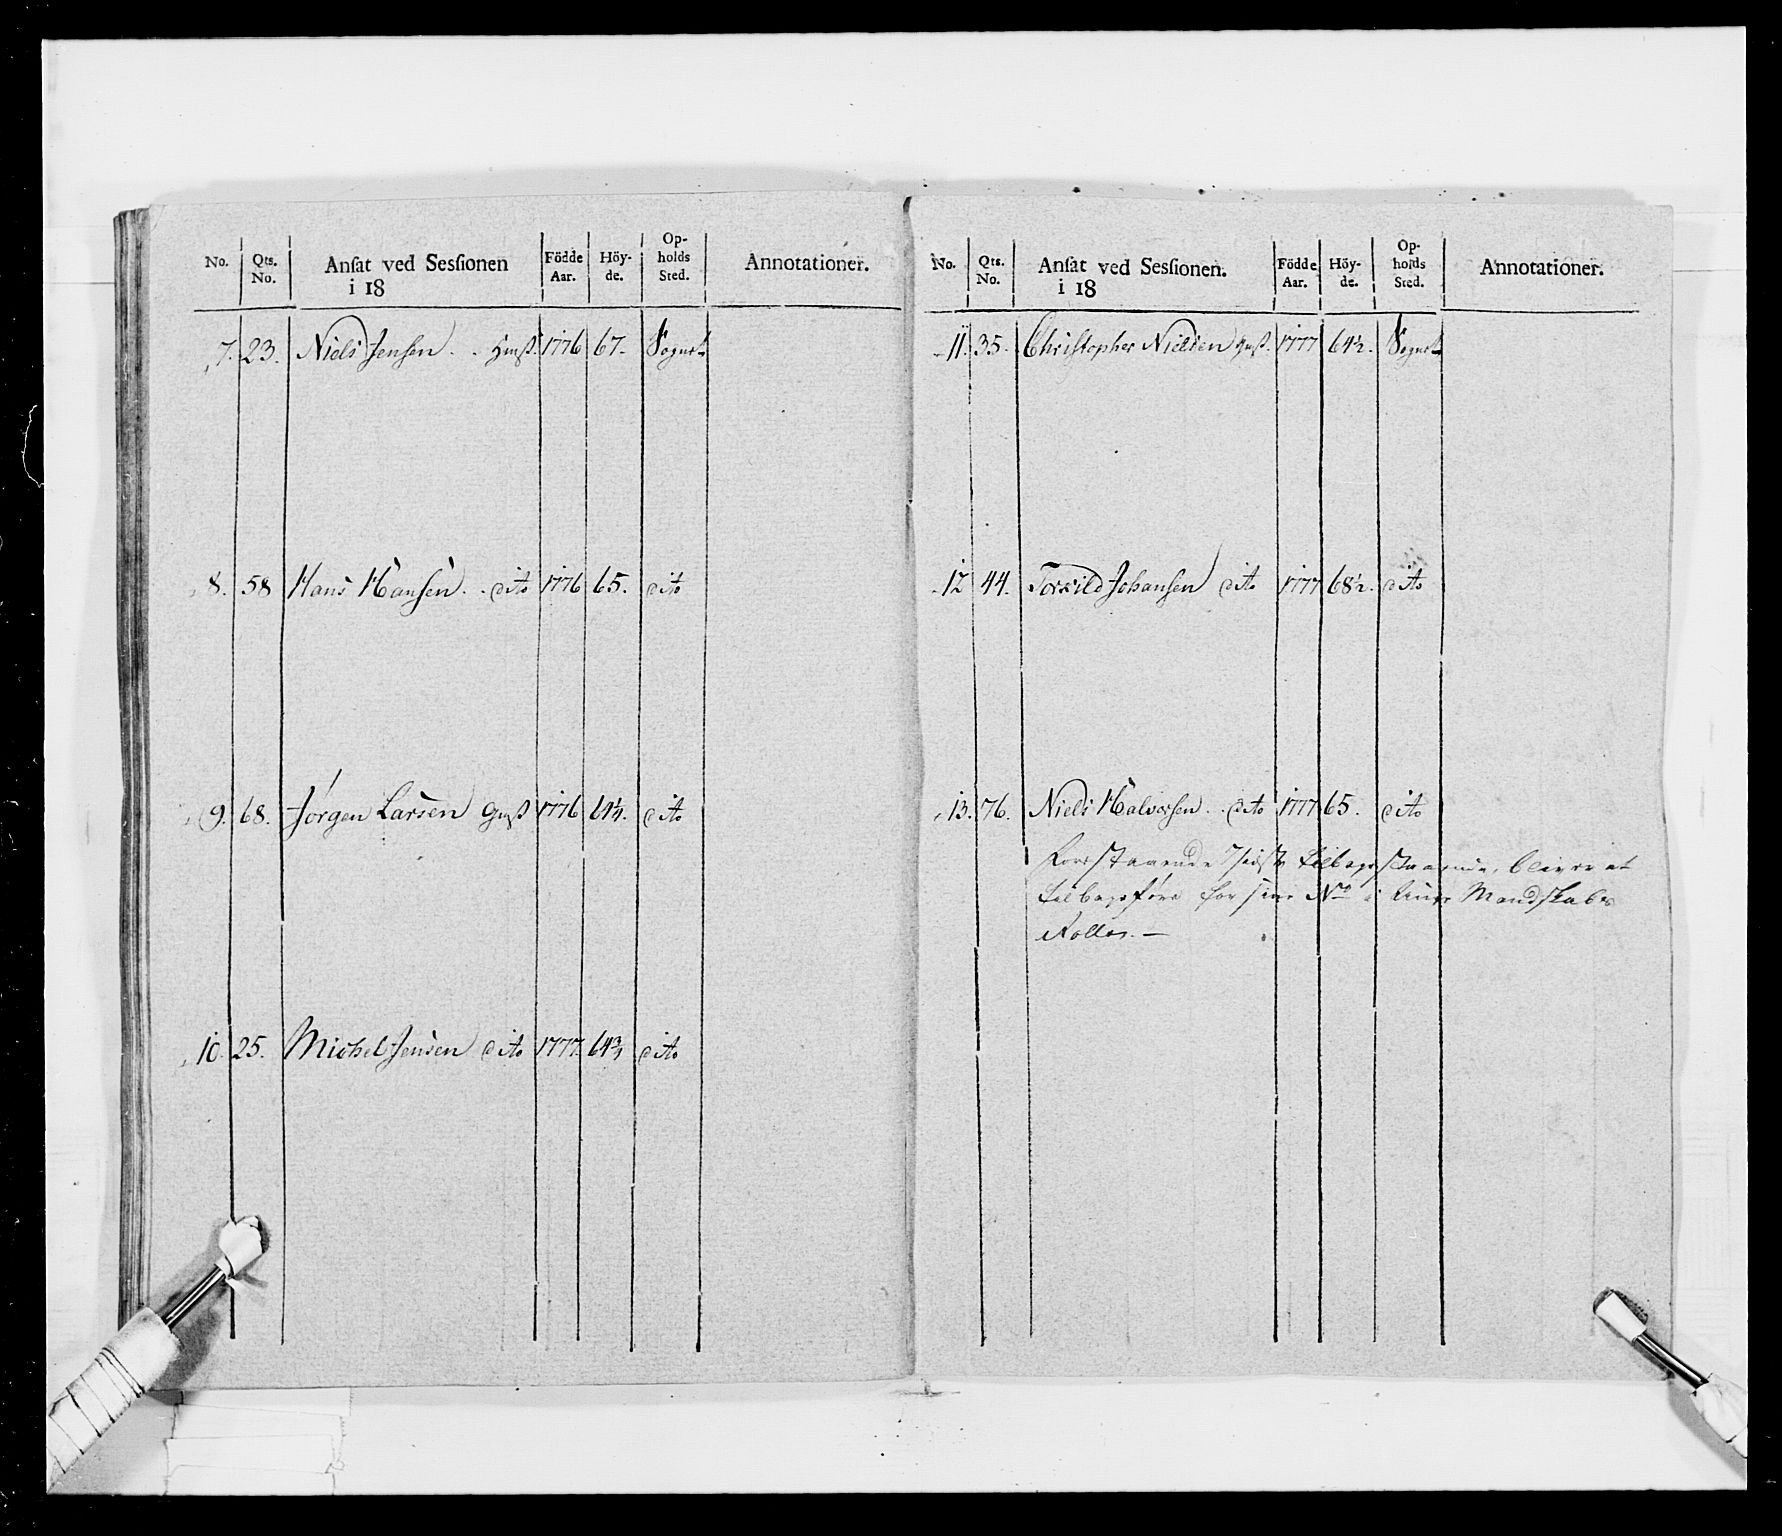 No. Qts. No. Ansat ved Sessionen i 18 Födde Aar. Höy-de. Op-holds Sted. Annotationer.
7. 23. Niels Jensen . . 1776 67. Sognet
8. 58 Hans Hansen . . dito 1776 65. dito
9. 68. Jørgen Larsen 1776 64¼. dito
10. 25. Michel Jensen dito 1777. 64¾ dito
No. Qts. No. Ansat ved Sessionen. i 18 Födde Aar. Höy-de. Op-holds Sted. Annotationer.
11. 35. Christopher Nielsen 1777 64½. Sognet
12 44. Torkild Johansen dito 1777 68½. dito
13. 76. Niels Halvorsen . . dito 1777 65. dito
Forestaaende tilbagestaaende, bliver at
tilbageføre for sine No i Mandskabs
Rolles. —